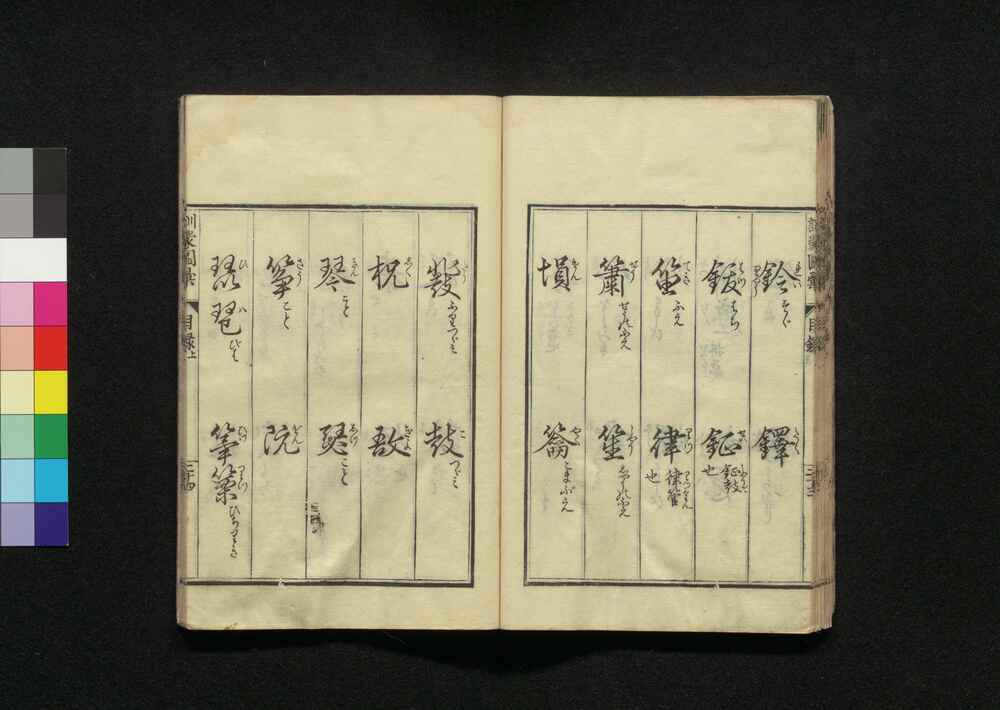 訓蒙圖彙 目録
鈴 すゞ
鐸
鈸 はち
鉦 鉦鼓也
笛 ふえ
律 律管也
簫 せうのふえ
笙 しやうのふえ
塤
籥 こまぶえ
鼗 ふりつゞみ
鼓 つゞみ
柷
敔
琴 こと
瑟 こと
箏 こと
阮
琵琶 びわ
篳篥 ひちりき
訓蒙圖彙 目録上 二十四